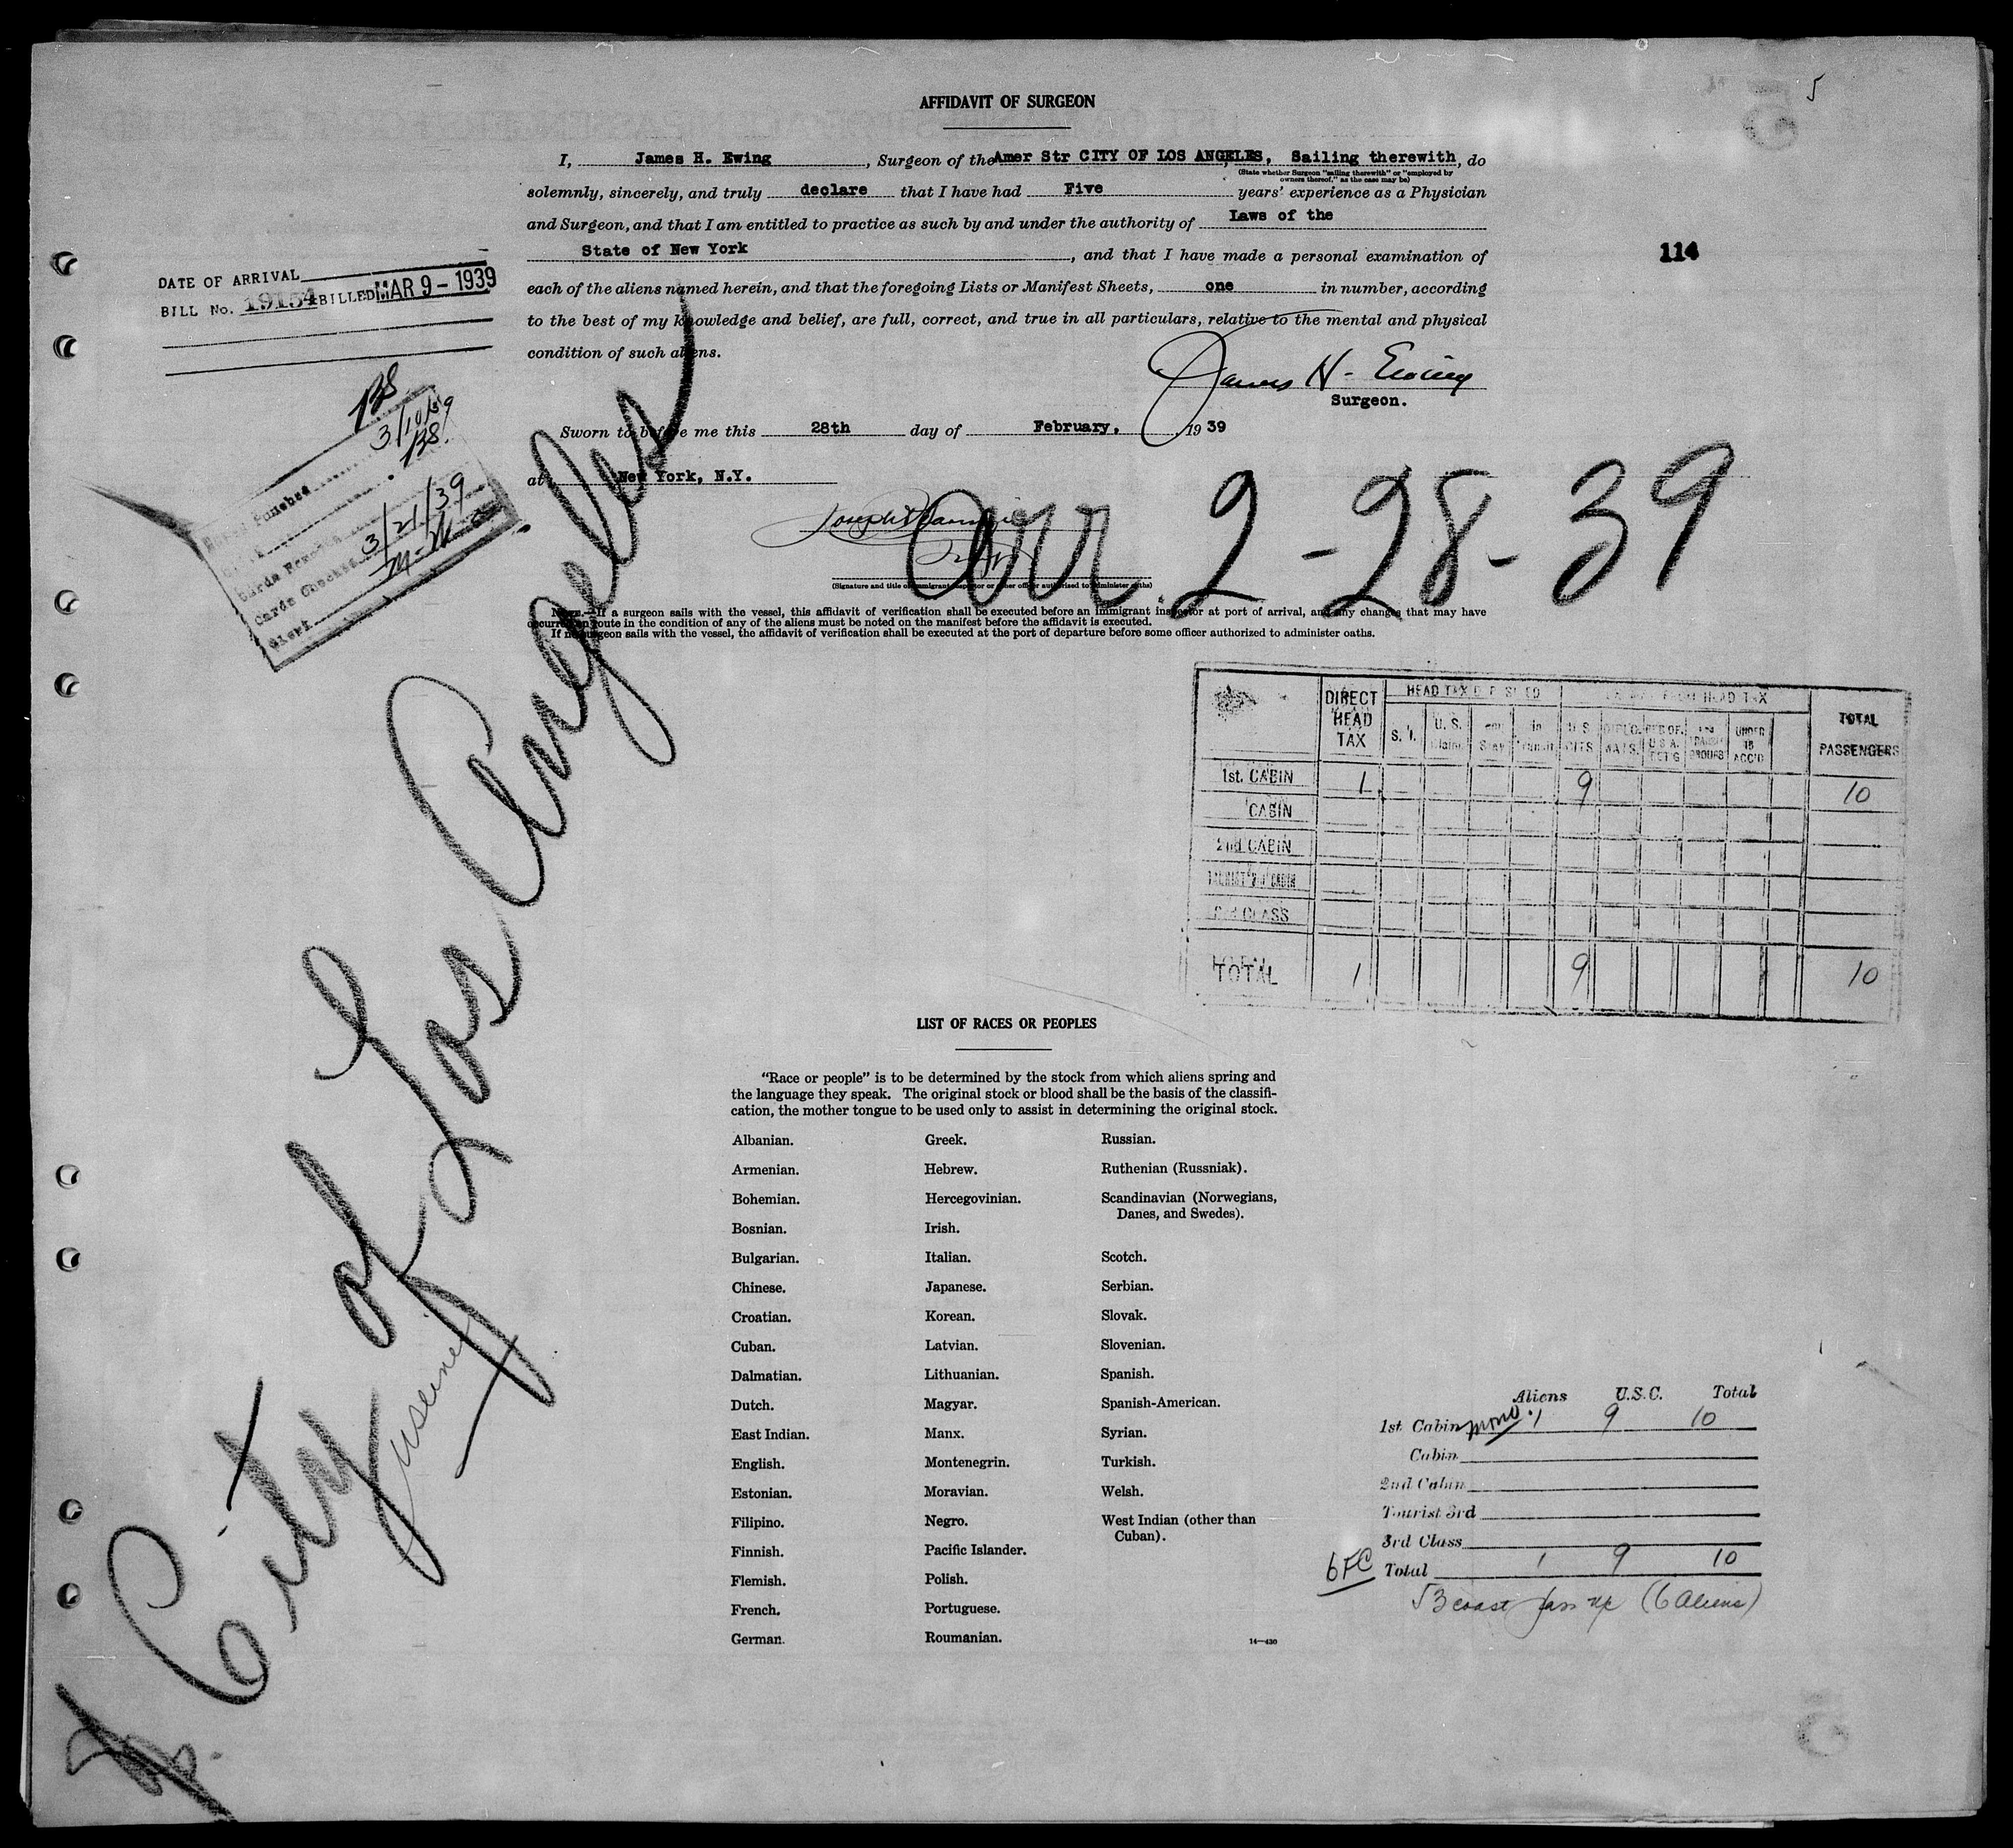 5
AFFIDAVIT OF SURGEON
I, James H. Ewing, Surgeon of the Amer Str CITY OF LOS ANGELES, Sailing therewith, do
(State whether Surgeon "sailing therewith" or "employed by
owners thereof," as the case may be)
solemnly, sincerely, and truly declare that I have had Five years' experience as a Physician
and Surgeon, and that I am entitled to practice as such by and under the authority of Laws of the
State of New York, and that I have made a personal examination of
114
each of the aliens named herein, and that the foregoing Lists or Manifest Sheets, one in number, according
to the best of my knowledge and belief, are full, correct, and true in all particulars, relative to the mental and physical
condition of such aliens.
James H. Ewing
Surgeon.
Sworn to before me this 28th day of February, 1939
at New York, N.Y.
(Signature and title of immigrant inspector or other officer authorised to administer oaths)
NOTE.—If a surgeon sails with the vessel, this affidavit of verification shall be executed before an immigrant inspector at port of arrival, and any changes that may have
occurred en route in the condition of any of the aliens must be noted on the manifest before the affidavit is executed.
If no surgeon sails with the vessel, the affidavit of verification shall be executed at the port of departure before some officer authorized to administer oaths.
DATE OF ARRIVAL
BILL No. 19154 BILLED MAR 9 - 1939
3/10/39
Cards Checked 3/21/39
Clerk M-M
Arr. 2-28-39
City of Los Angeles
DIRECT HEAD TAX
HEAD TAX DEPOSITED
FROM HEAD TAX
TOTAL PASSENGERS
S. I.
U. S.
in Transit
U. S. CITS
DIPLO.
UNDER 16 ACC'D
1st. CABIN 1 9 10
CABIN
2nd CABIN
TOURIST 3rd CABIN
3rd CLASS
TOTAL 1 9 10
LIST OF RACES OR PEOPLES
"Race or people" is to be determined by the stock from which aliens spring and
the language they speak. The original stock or blood shall be the basis of the classifi-
cation, the mother tongue to be used only to assist in determining the original stock.
Albanian.
Armenian.
Bohemian.
Bosnian.
Bulgarian.
Chinese.
Croatian.
Cuban.
Dalmatian.
Dutch.
East Indian.
English.
Estonian.
Filipino.
Finnish.
Flemish.
French.
German.
Greek.
Hebrew.
Hercegovinian.
Irish.
Italian.
Japanese.
Korean.
Latvian.
Lithuanian.
Magyar.
Manx.
Montenegrin.
Moravian.
Negro.
Pacific Islander.
Polish.
Portuguese.
Roumanian.
Russian.
Ruthenian (Russniak).
Scandinavian (Norwegians,
Danes, and Swedes).
Scotch.
Serbian.
Slovak.
Slovenian.
Spanish.
Spanish-American.
Syrian.
Turkish.
Welsh.
West Indian (other than
Cuban).
14—430
Aliens U.S.C. Total
1st Cabin 1 9 10
Cabin
2nd Cabin
Tourist 3rd
3rd Class
6FC Total 1 9 10
53 coast (6 Aliens)